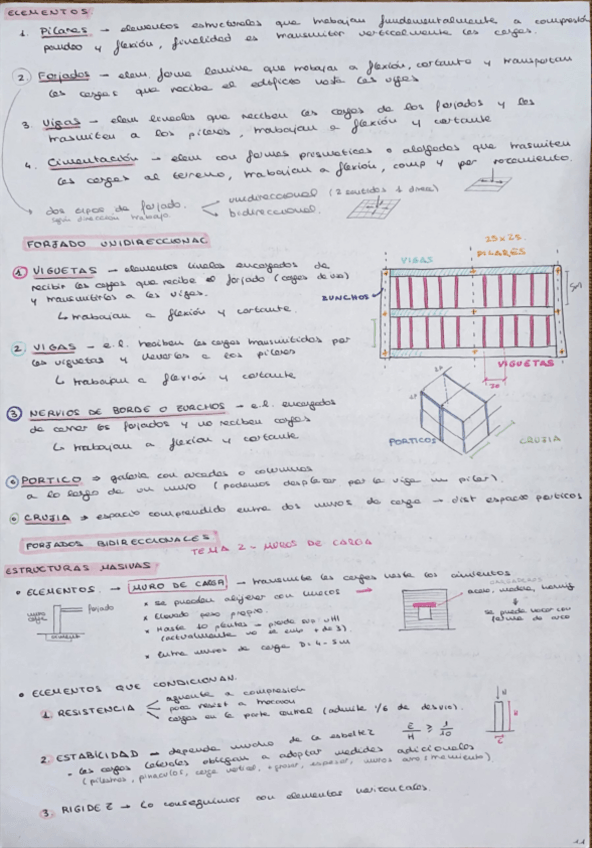 ELEMENTOS
1. Pilares → elementos estructurales que trabajan fundamentalmente a compresión
pandeo y flexión, finalidad es transmitir verticalmente las cargas.
2. Forjados → elem. forma lamina que trabajan a flexión, cortante y transportan
las cargas que recibe el edificio hasta las vigas
3. Vigas → elem lineales que reciben las cargas de los forjados y las
trasmiten a los pilares, trabajan a flexión y cortante
4. Cimentación → elem con formas prismaticas o alargadas que trasmiten
las cargas al terreno, trabajan a flexión, comp y por rozamiento.
dos tipos de forjado.
según dirección trabajo
unidireccional (2 sentidos 1 direcc)
bidireccional.
FORJADO UNIDIRECCIONAL
1 VIGUETAS → elementos lineales encargados de
recibir las cargas que recibe el forjado (cargas de uso)
y transmitirlos a las vigas.
↳ trabajan a flexión y cortante.
25x25
VIGAS PILARES
ZUNCHOS
VIGUETAS
70
2 VIGAS → e.l. reciben las cargas transmitidas por
las viguetas y llevarlas a los pilares
↳ trabajan a flexión y cortante
3 NERVIOS DE BORDE O ZUNCHOS → e.l. encargados
de cerrar los forjados y no reciben cargas
↳ trabajan a flexion y cortante
PORTICOS
CRUJIA
PORTICO → galeria con arcadas o columnas
a lo largo de un muro (podemos desplazar por la viga un pilar).
CRUJIA → espacio comprendido entre dos muros de carga → dist espacio porticos
FORJADOS BIDIRECCIONALES
TEMA 2 - MUROS DE CARGA
ESTRUCTURAS MASIVAS
• ELEMENTOS. → MURO DE CARGA → transmite las cargas hasta los cimientos
muro carga
forjado
cimiento
* se pueden aligerar con huecos →
* Elevado peso propio.
* Hasta 10 plantas → pierde
(actualmente no se sube + de 3).
* Entre muros de carga D = 4 - 5m
acero, madera, hormig
↓
se puede hacer con
forma de arco
• ELEMENTOS QUE CONDICIONAN.
1. RESISTENCIA
aguante a compresión
poca resist a traccion
cargas en la parte central (admite 1/6 de desvio).
2. ESTABILIDAD → depende mucho de la esbeltez E/H ≥ 1/10
• las cargas laterales obligan a adoptar medidas adicionales
(pilastras, pinaculos, carga vertical, + grosor, espesor, muros arriostramiento)
N
H
E
3. RIGIDEZ → Lo conseguimos con elementos horizontales.
1.1